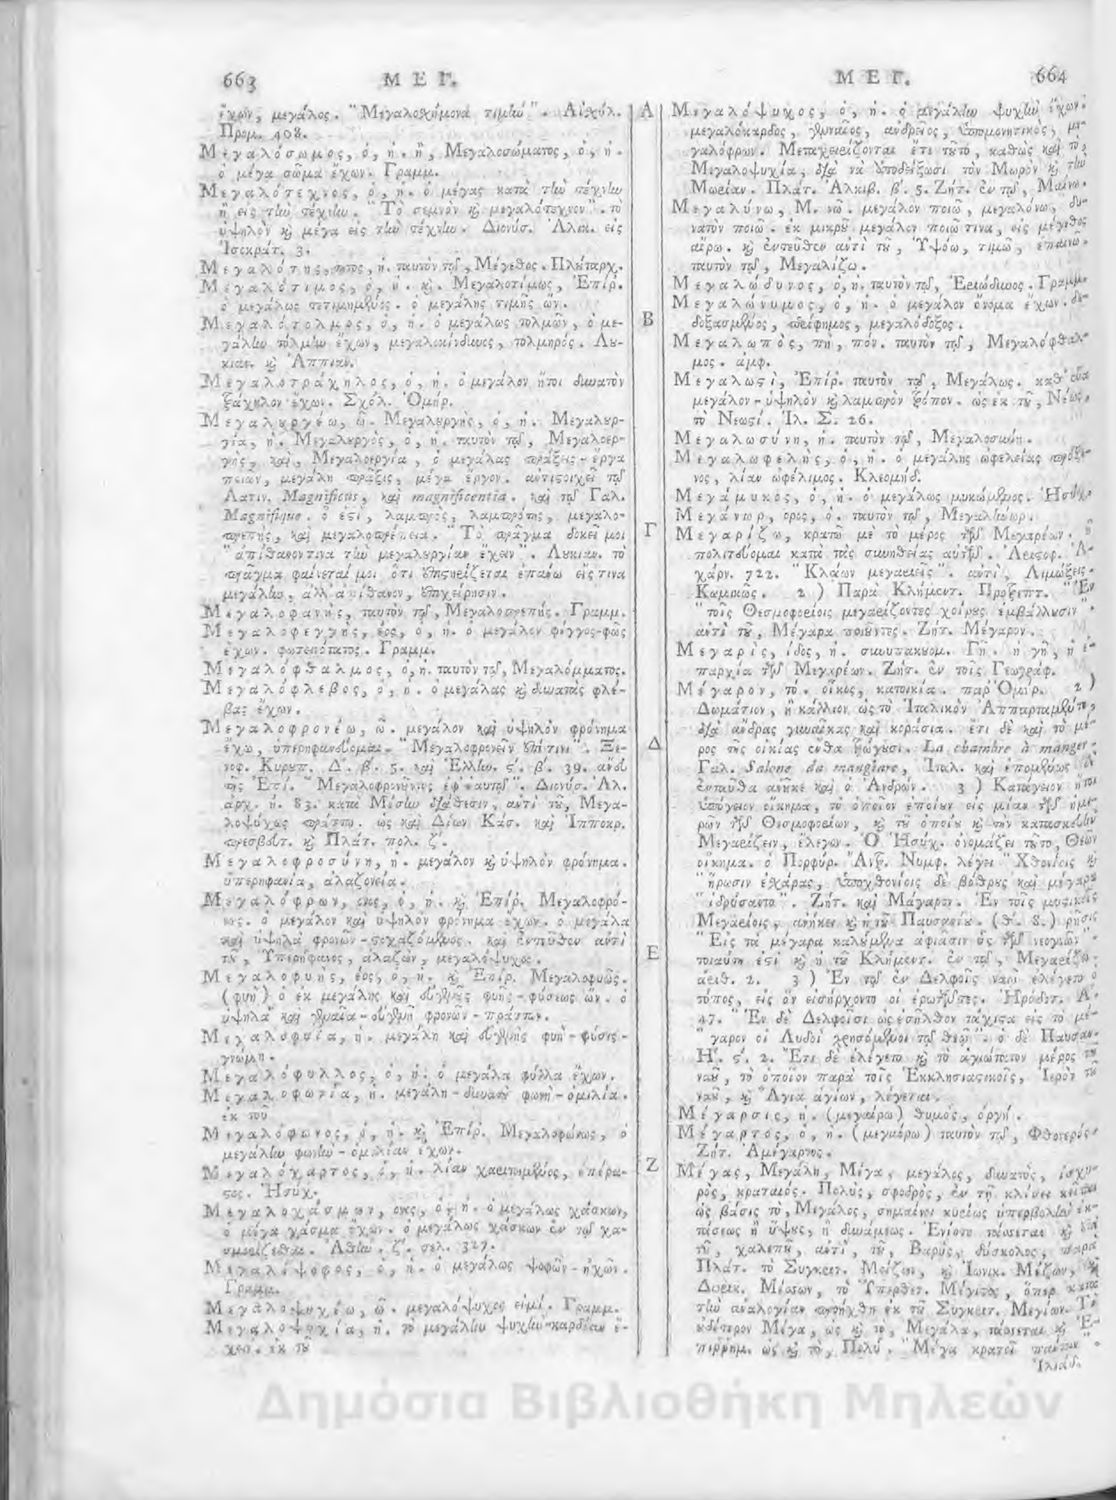 663 ΜΕΓ.
ἔχων, μεγάλος. "Μεγαλοσχήμονα τιμὴν". Αἰσχύλ.
Προμ. 408.
Μεγαλόσωμος, ὁ, ἡ. ἢ, Μεγαλοσώματος, ὁ, ἡ.
ὁ μέγα σῶμα ἔχων. Γραμμ.
Μεγαλότεχνος, ὁ, ἡ. ὁ μέγας κατὰ τὴν τέχνην
ἢ εἰς τὴν τέχνην. "Τὸ σεμνὸν καὶ μεγαλότεχνον". τὸ
ὑψηλὸν καὶ μέγα εἰς τὴν τέχνην. Διονύσ. Ἁλικ. εἰς
Ἰσοκράτ. 3.
Μεγαλότης, ἡ. ταυτὸν τῷ, Μέγεθος. Πλούταρχ.
Μεγαλότιμος, ὁ, ἡ. καὶ. Μεγαλοτίμως, Ἐπίρ.
ὁ μεγάλως τετιμημένος. ὁ μεγάλης τιμῆς ὤν.
Μεγαλότολμος, ὁ, ἡ. ὁ μεγάλως τολμῶν, ὁ με-
γάλην τόλμην ἔχων, μεγαλοκίνδυνος, τολμηρός. Λου-
κιαν. καὶ Ἀππιαν.
Μεγαλοτράχηλος, ὁ, ἡ. ὁ μεγάλον ἤτοι δυνατὸν
τράχηλον ἔχων. Σχόλ. Ὁμήρ.
Μεγαλουργέω, ῶ. Μεγαλουργὴς, ὁ, ἡ. Μεγαλουρ-
γία, ἡ. Μεγαλουργὸς, ὁ, ἡ. ταυτὸν τῷ, Μεγαλοερ-
γὸς, καὶ, Μεγαλοεργία, ὁ μεγάλας πράξεις - ἔργα
ποιῶν, μεγάλη πρᾶξις, μέγα ἔργον. ἀντιστοιχεῖ τῷ
Λατιν. Magnificus, καὶ magnificentia. καὶ τῷ Γαλ.
Magnifique. ὅ ἐστι, λαμπρὸς, λαμπρότης, μεγαλο-
πρεπὴς, καὶ μεγαλοπρέπεια. "Τὸ πρᾶγμα δοκεῖ μοι
"ἀπίθανόν τινα τὴν μεγαλουργίαν ἔχειν". Λυκιαν. τὸ
πρᾶγμα φαίνεταί μοι ὅτι ἐπιστηρίζεται ἐπάνω εἴς τινα
μεγάλην, ἀλλ' ἀπίθανον, ἐπιχείρησιν.
Μεγαλοφανὴς, ταυτὸν τῷ, Μεγαλοπρεπής. Γραμμ.
Μεγαλοφεγγὴς, έος, ὁ, ἡ. ὁ μεγάλον φέγγος-φῶς
ἔχων. φωτεινότατος. Γραμμ.
Μεγαλόφθαλμος, ὁ, ἡ. ταυτὸν τῷ, Μεγαλόμματος.
Μεγαλόφλεβος, ὁ, ἡ. ὁ μεγάλας καὶ δυνατὰς φλέ-
βας ἔχων.
Μεγαλοφρονέω, ῶ. μεγάλον καὶ ὑψηλὸν φρόνημα
ἔχω, ὑπερηφανεύομαι. "Μεγαλοφρονεῖν ἐπί τινι". Ξε-
νοφ. Κυρουπ. Δ΄. β΄. 5. καὶ Ἑλλην. ς΄. β΄. 39. ἄνευ
τῆς Ἐπί. "Μεγαλοφρονῶντες ἐφ' ἑαυτῷ". Διονύσ. Ἁλ.
ἀρχ. η. 83. κατὰ Μέσην διάθεσιν, ἀντὶ τοῦ, Μεγα-
λοψύχως πράττω. ὡς καὶ Δίων Κάσ. καὶ Ἱπποκρ.
πρεσβευτ. καὶ Πλάτ. πολ. ζ΄.
Μεγαλοφροσύνη, ἡ. μεγάλον καὶ ὑψηλὸν φρόνημα.
ὑπερηφανία, ἀλαζονεία.
Μεγαλόφρων, ονος, ὁ, ἡ. καὶ Ἐπίρ. Μεγαλοφρό-
νως. ὁ μεγάλον καὶ ὑψηλὸν φρόνημα ἔχων. ὁ μεγάλα
καὶ ὑψηλὰ φρονῶν - στοχαζόμενος. καὶ ἐντεῦθεν ἀντὶ
τοῦ, Ὑπερήφανος, ἀλαζὼν, μεγαλόψυχος.
Μεγαλοφυὴς, έος, ὁ, ἡ. καὶ Ἐπίρ. Μεγαλοφυῶς.
(φυὴ) ὁ ἐκ μεγάλης καὶ εὐγενῆς φυῆς - φύσεως ὤν. ὁ
ὑψηλὰ καὶ γενναῖα - εὐγενῆ φρονῶν - πράττων.
Μεγαλοφυΐα, ἡ. μεγάλη καὶ εὐγενὴς φυὴ - φύσις -
γνώμη.
Μεγαλόφυλλος, ὁ, ἡ. ὁ μεγάλα φύλλα ἔχων.
Μεγαλοφωνία, ἡ. μεγάλη - δυνατὴ φωνὴ - ὁμιλία.
ἐκ τοῦ
Μεγαλόφωνος, ὁ, ἡ. καὶ Ἐπίρ. Μεγαλοφώνως, ὁ
μεγάλην φωνὴν - ὁμιλίαν ἔχων.
Μεγαλόχαρτος, ὁ, ἡ. λίαν χαιρόμενος,
Ἡσύχ.
Μεγαλοχάσμων, ονος, ὁ, ἡ. ὁ μεγάλως χάσκων,
ὁ μέγα χάσμα ἔχων. ὁ μεγάλως χάσκων ἐν τῷ χα-
σμουρίζεσθαι. Ἀθήν. ζ΄. σελ. 327.
Μεγαλόψοφος, ὁ, ἡ. ὁ μεγάλως ψοφῶν - ἠχῶν.
Γραμμ.
Μεγαλοψυχέω, ῶ. μεγαλόψυχος εἰμί. Γραμμ.
Μεγαλοψυχία, ἡ. τὸ μεγάλην ψυχὴν-καρδίαν ἔ-
χειν. ἐκ τοῦ
Α
Β
Γ
Δ
Ε
Ζ
ΜΕΓ. 664
Μεγαλόψυχος, ὁ, ἡ. ὁ μεγάλην ψυχὴν ἔχων.
μεγαλόκαρδος, γενναῖος, ἀνδρεῖος, ὑπομονητικὸς, με-
γαλόφρων. Μεταχειρίζονται ἔτι τοῦτο, καθὼς καὶ τὸ,
Μεγαλοψυχία, διὰ νὰ ὑποδείξωσι τὸν Μωρὸν καὶ τὴν
Μωρίαν. Πλάτ. Ἀλκιβ. β΄. 5. Ζήτ. ἐν τῷ, Μαίνω.
Μεγαλύνω, Μ. νῶ. μεγάλον ποιῶ, μεγαλόνω, δυ-
νατὸν ποιῶ. ἐκ μικροῦ μεγάλον ποιῶ τινα, εἰς μέγεθος
αἴρω. καὶ ἐντεῦθεν ἀντὶ τοῦ, Ὑψόω, τιμῶ, ἐπαινῶ.
ταυτὸν τῷ, Μεγαλίζω.
Μεγαλώδυνος, ὁ, ἡ. ταυτὸν τῷ, Ἐριώδυνος. Γραμμ.
Μεγαλώνυμος, ὁ, ἡ. ὁ μεγάλον ὄνομα ἔχων. δε-
δοξασμένος, περίφημος, μεγαλόδοξος.
Μεγαλωπὸς, πὴ, πόν. ταυτὸν τῷ, Μεγαλόφθαλ-
μος. ἀμφ.
Μεγαλωστὶ, Ἐπίρ. ταυτὸν τῷ, Μεγάλως. καθ' ἕνα
μεγάλον - ὑψηλὸν καὶ λαμπρὸν τρόπον. ὡς ἐκ τοῦ, Νέως,
τὸ Νεωστί. Ἰλ. Σ. 26.
Μεγαλωσύνη, ἡ. ταυτὸν τῷ, Μεγαλοσύνη.
Μεγαλωφελὴς, ὁ, ἡ. ὁ μεγάλης ὠφελείας πρόξε-
νος, λίαν ὠφέλιμος. Κλεομήδ.
Μεγάμυκος, ὁ, ἡ. ὁ μεγάλως μυκώμενος. Ἡσύχ.
Μεγάνωρ, ορος, ὁ. ταυτὸν τῷ, Μεγαλήνωρ.
Μεγαρίζω, κρατῶ μὲ τὸ μέρος τῶν Μεγαρέων. ἢ
πολιτεύομαι κατὰ τὰς συνηθείας αὐτῶν. Ἀριστοφ. Ἀ-
χάρν. 722. "Κλάων μεγαριεῖς". ἀντὶ, Λιμώξεις.
Καμωώς. 2) Παρὰ Κλήμεντ. Προτρεπτ. "Ἐν
"τοῖς Θεσμοφορίοις μεγαρίζοντες χοίρους ἐμβάλλουσιν".
ἀντὶ τοῦ, Μέγαρα ποιοῦντες. Ζήτ. Μέγαρον.
Μεγαρὶς, ίδος, ἡ. συνυπακουομ. Γῆ. ἡ γῆ, ἡ ἐ-
παρχία τῶν Μεγαρέων. Ζήτ. ἐν τοῖς Γεωγράφ.
Μέγαρον, τό. οἶκος, κατοικία. παρ' Ὁμήρ. 2)
Δωμάτιον, ἢ κάλλιον ὡς τὸ Ἰταλικὸν Ἀππαρταμέντο,
διὰ ἄνδρας γυναῖκας καὶ κοράσια. ἔτι δὲ καὶ τὸ μέ-
ρος τῆς οἰκίας ἔνθα τρώγουσι. La chambre à manger.
Γαλ. Salone da mangiare, Ἰταλ. καὶ ἑπομένως
ἐνταῦθα ἀνῆκε καὶ ὁ Ἀνδρών. 3) Κατάγειον ἤτοι
ὑπόγειον οἴκημα, τὸ ὁποῖον ἐποίουν εἰς μίαν τῶν ἡμε-
ρῶν τῶν Θεσμοφορίων, καὶ τοῦ ὁποίου καὶ τὴν κατασκευὴν
Μεγαρίζειν, ἔλεγον. Ὁ Ἡσύχ. ὀνομάζει τοῦτο, Θεῶν
οἴκημα. ὁ Πορφύρ. Ἄντρ. Νυμφ. λέγει "Χθονίοις καὶ
"ἥρωσιν ἐσχάρας, ὑποχθονίοις δὲ βόθρους καὶ μέγαρα
"ἱδρύσαντο". Ζήτ. καὶ Μάγαρον. Ἐν τοῖς μυστικοῖς
Μεγαρίοις, ἀνήκει καὶ ἡ τοῦ Παυσανίου. (θ΄. 8.) ρῆσις
"Εἰς τὰ μέγαρα καλούμενα ἀφιᾶσιν ὗς τῶν νεογνῶν".
τοιαύτη ἐστὶ καὶ ἡ τοῦ Κλήμεντ. ἐν τῷ, Μεγαρίζω.
ἀριθ. 2. 3) Ἐν τῷ ἐν Δελφοῖς ναῷ ἐλέγετο ὁ
τόπος, εἰς ὃν εἰσήρχοντο οἱ ἐρωτῶντες. Ἡρόδοτ. Α΄.
47. "Ἐν δὲ Δελφοῖσι ὡς ἐσῆλθον τάχιστα εἰς τὸ μέ-
"γαρον οἱ Λυδοὶ χρησόμενοι τῷ θεῷ". ὁ δὲ Παυσαν.
Η΄. ς΄. 2. Ἔτι δὲ ἐλέγετο καὶ τὸ ἁγιώτατον μέρος τοῦ
ναοῦ, τὸ ὁποῖον παρὰ τοῖς Ἐκκλησιαστικοῖς, Ἱερὸν τοῦ
ναοῦ, καὶ Ἅγια ἁγίων, λέγεται.
Μέγαρσις, ἡ. (μεγαίρω) θυμὸς, ὀργή.
Μέγαρτος, ὁ, ἡ. (μεγαίρω) ταυτὸν τῷ, Φθονερός.
Ζήτ. Ἀμέγαρτος.
Μέγας, Μεγάλη, Μέγα, μεγάλος, δυνατὸς, ἰσχυ-
ρὸς, κραταιός. Πολὺς, σφοδρὸς, ἐν τῇ κλίσει κεῖται
ὡς βάσις τὸ, Μεγάλος, σημαίνει κυρίως ὑπερβολὴν ἐκ-
τάσεως ἢ ὕψους, ἢ δυνάμεως. Ἐνίοτε τάσσεται καὶ ἐπὶ
τοῦ, χαλεποῦ, ἀντὶ, τοῦ, Βαρὺς, δύσκολος, παρὰ
Πλάτ. τὸ Συγκριτ. Μείζων, καὶ Ἰωνικ. Μέζων, καὶ
Δωρικ. Μέσσων, τὸ Ὑπερθετ. Μέγιστος, ὅπερ κατὰ
τὴν ἀναλογίαν προήχθη ἐκ τοῦ Συγκριτ. Μεγίων. Τὸ
οὐδέτερον Μέγα, ὡς καὶ τὸ, Μεγάλα, τάσσεται καὶ Ἐ-
πιρρημ. ὡς καὶ τὸ, Πολύ. "Μέγα κρατεῖ πάντων".
Ἰλιάδ.
Δημόσια Βιβλιοθήκη Μηλεών